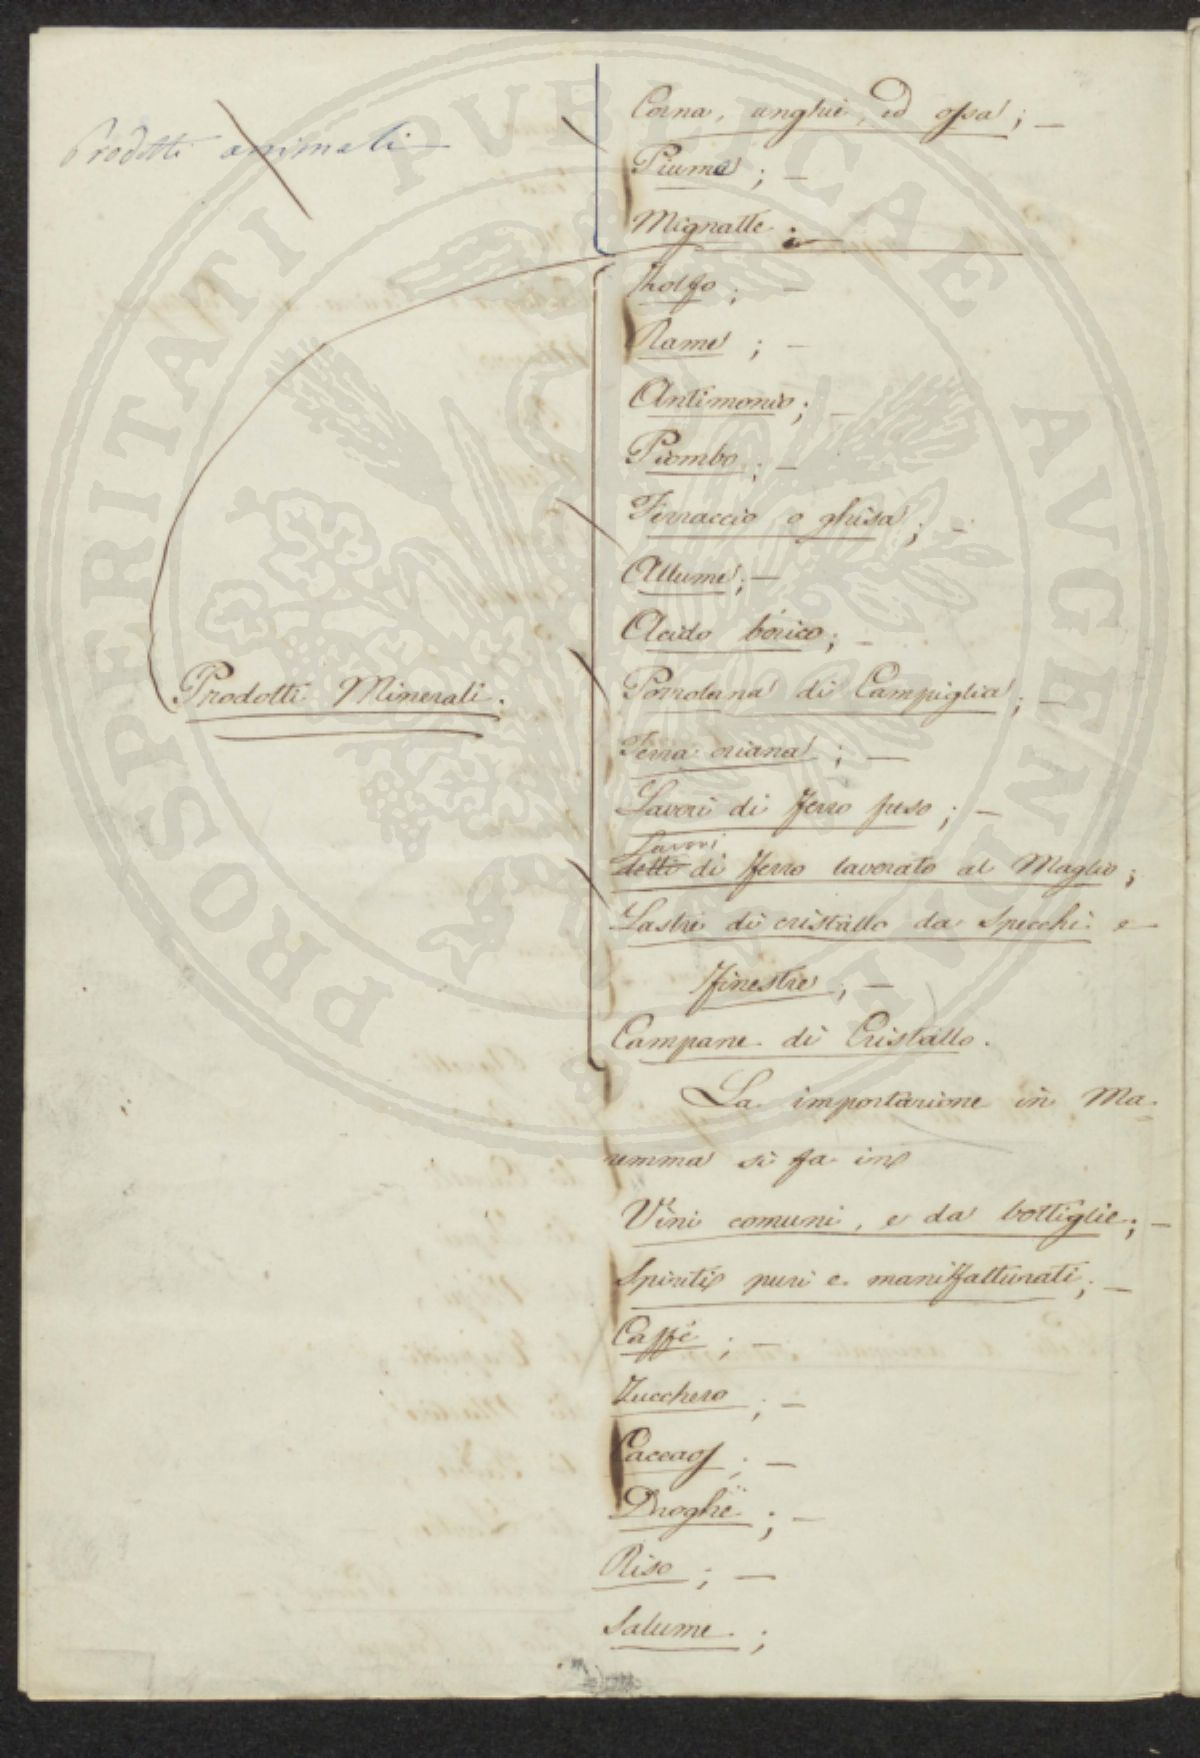 Prodotti animali
Corna, unghie, ed ossa; —
Piume; —
Mignatte. —
Zolfo; —
Rame; —
Antimonio; —
Piombo; —
Ferraccio o ghisa; —
Allume; —
Acido borico; —
Prodotti Minerali.
Porrolana di Campiglia; —
Terra oriana; —
Lavori di ferro fuso; —
Lavori
detti di ferro lavorato al Maglio;
Lastre di cristallo da Specchi e
finestre; —
Campane di Cristallo.
La importazione in Ma-
remma si fa in
Vini comuni, e da bottiglie; —
Spiriti puri e maniffatturati; —
Caffè; —
Zucchero; —
Caccao; —
Droghe; —
Riso; —
Salume;
PROSPERITATI PVBLICAE AVGENDAE